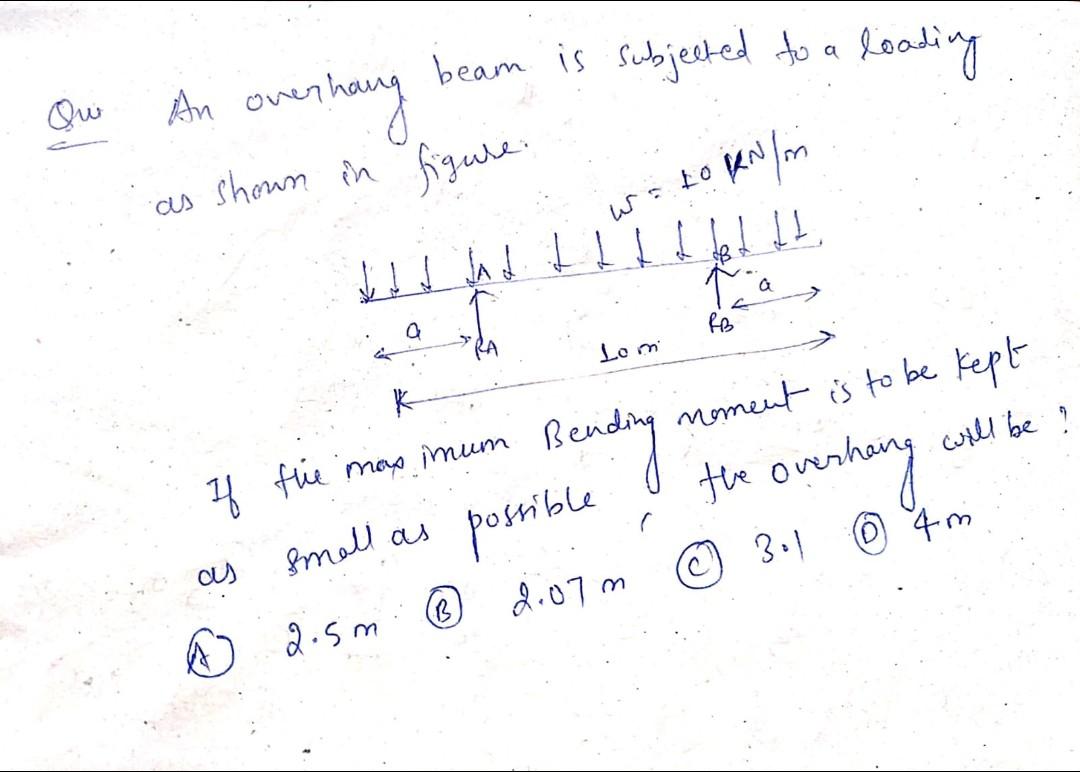 Qu An overhang beam is subjected to a loading
as shown in figure.
w = 10 KN/m
A B
a RA RB a
10 m
If the maximum Bending moment is to be kept
as small as possible, the overhang will be ?
(A) 2.5 m (B) 2.07 m (C) 3.1 (D) 4 m